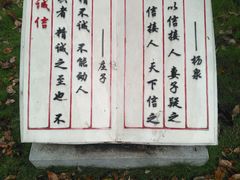 诚信
者 精诚之至也 不
精不诚 不能动人
——庄子
信接人 天下信之
以信接人 妻子疑之
——杨泉